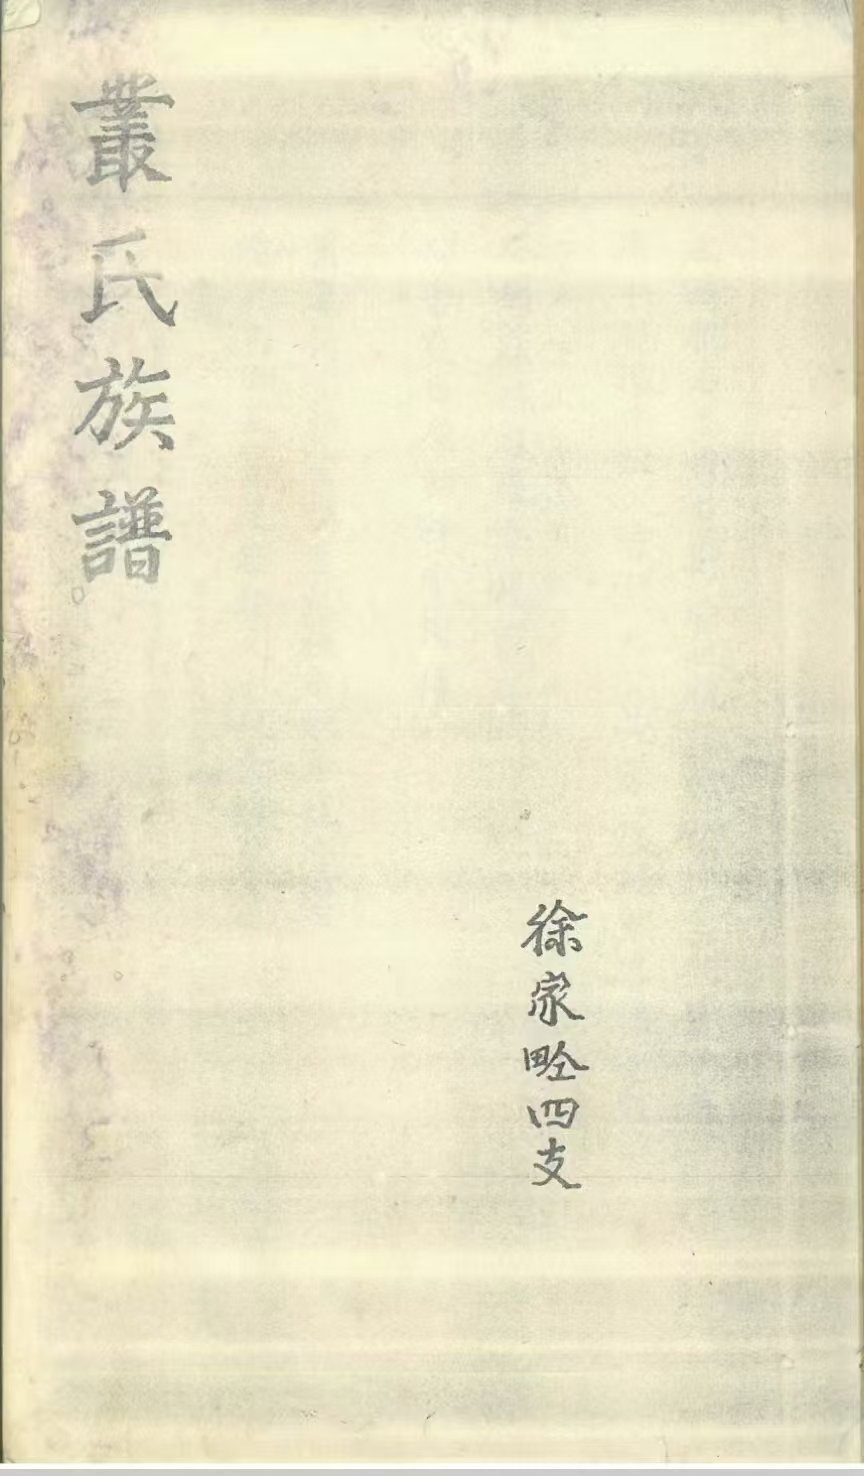 叢氏族譜
徐家四支